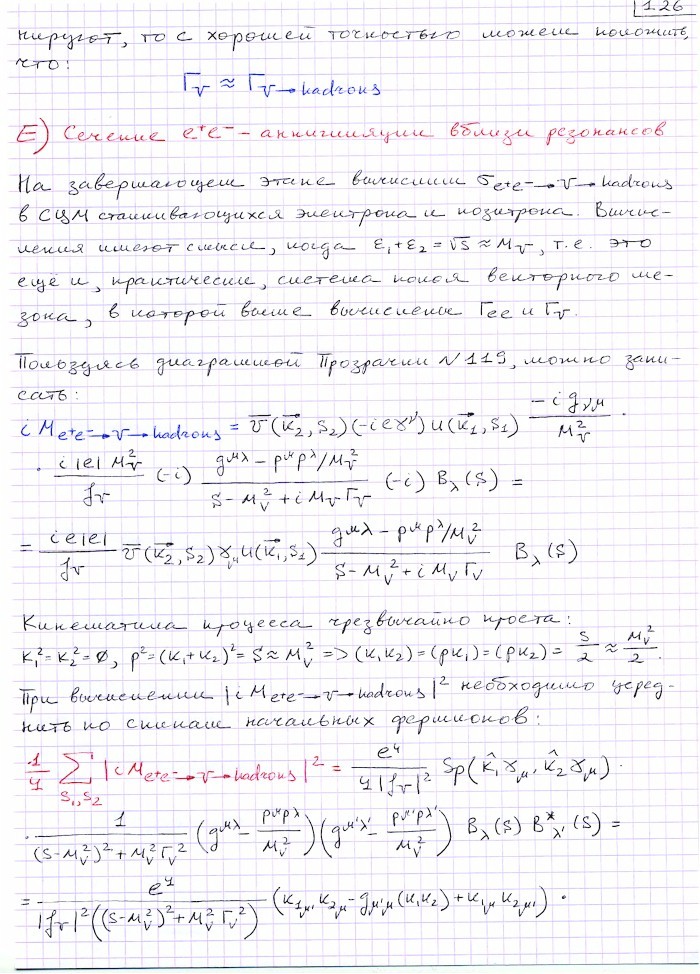 1.26
нируют, то с хорошей точностью можем положить,
что:
Γ_V ≈ Γ_{V→hadrons}
E) Сечение e⁺e⁻ – аннигиляции вблизи резонансов
На завершающем этапе вычислим σ_{e⁺e⁻→V→hadrons}
в СЦМ сталкивающихся электрона и позитрона. Вычис-
ления имеют смысл, когда ε₁+ε₂ = √s ≈ M_V, т.е. это
ещё и, практически, система покоя векторного ме-
зона, в которой выше вычислены Γ_{ee} и Γ_V.
Пользуясь диаграммой Прозрачки N 119, можно запи-
сать:
i M_{e⁺e⁻→V→hadrons} = v̄(k⃗₂, s₂)(-ieγ^ν) u(k⃗₁, s₁) (-i g_{νμ})/M_V² ·
· (i|e| M_V²)/f_V (-i) (g^{μλ} - p^μ p^λ/M_V²)/(s - M_V² + i M_V Γ_V) (-i) B_λ(s) =
= (i e|e|)/f_V v̄(k⃗₂, s₂) γ_μ u(k⃗₁, s₁) (g^{μλ} - p^μ p^λ/M_V²)/(s - M_V² + i M_V Γ_V) B_λ(s)
Кинематика процесса чрезвычайно проста:
k₁² = k₂² = 0, p² = (k₁+k₂)² = s ≈ M_V² => (k₁k₂) = (pk₁) = (pk₂) = s/2 ≈ M_V²/2.
При вычислении |i M_{e⁺e⁻→V→hadrons}|² необходимо усред-
нить по спинам начальных фермионов:
1/4 Σ_{s₁,s₂} |i M_{e⁺e⁻→V→hadrons}|² = e⁴/(4|f_V|²) Sp(k̂₁ γ_{μ'} k̂₂ γ_μ) ·
· 1/((s-M_V²)² + M_V² Γ_V²) (g^{μλ} - p^μ p^λ/M_V²)(g^{μ'λ'} - p^{μ'} p^{λ'}/M_V²) B_λ(s) B*_{λ'}(s) =
= e⁴/(|f_V|²((s-M_V²)² + M_V² Γ_V²)) (k_{1μ'} k_{2μ} - g_{μ'μ}(k₁k₂) + k_{1μ} k_{2μ'}) ·